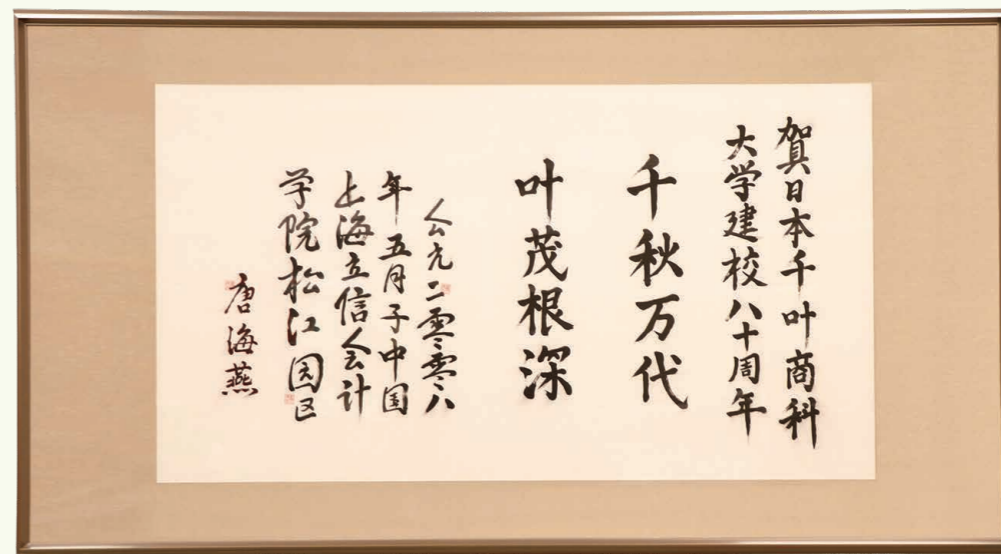 賀日本千叶商科
大学建校八十周年
千秋万代
叶茂根深
公元二零零八
年五月子中国
上海立信会计
学院松江园区
唐海燕